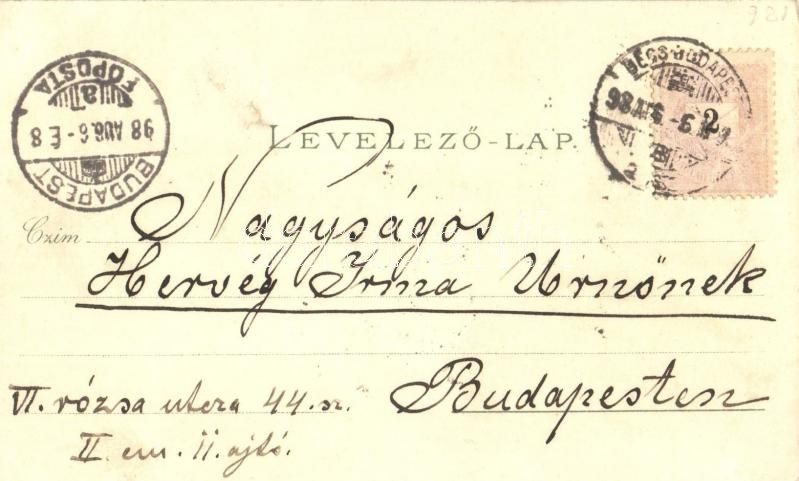 981
BUDAPEST
98 AUG. 6 - E 8
a
FŐPOSTA
BÉCS-BUDAPEST
98 AUG - 6
2
LEVELEZŐ-LAP.
Czim
Nagyságos
Hervég Irma Urnőnek
Budapesten
VI. rózsa utcza 44. sz.
II em. ii. ajtó.